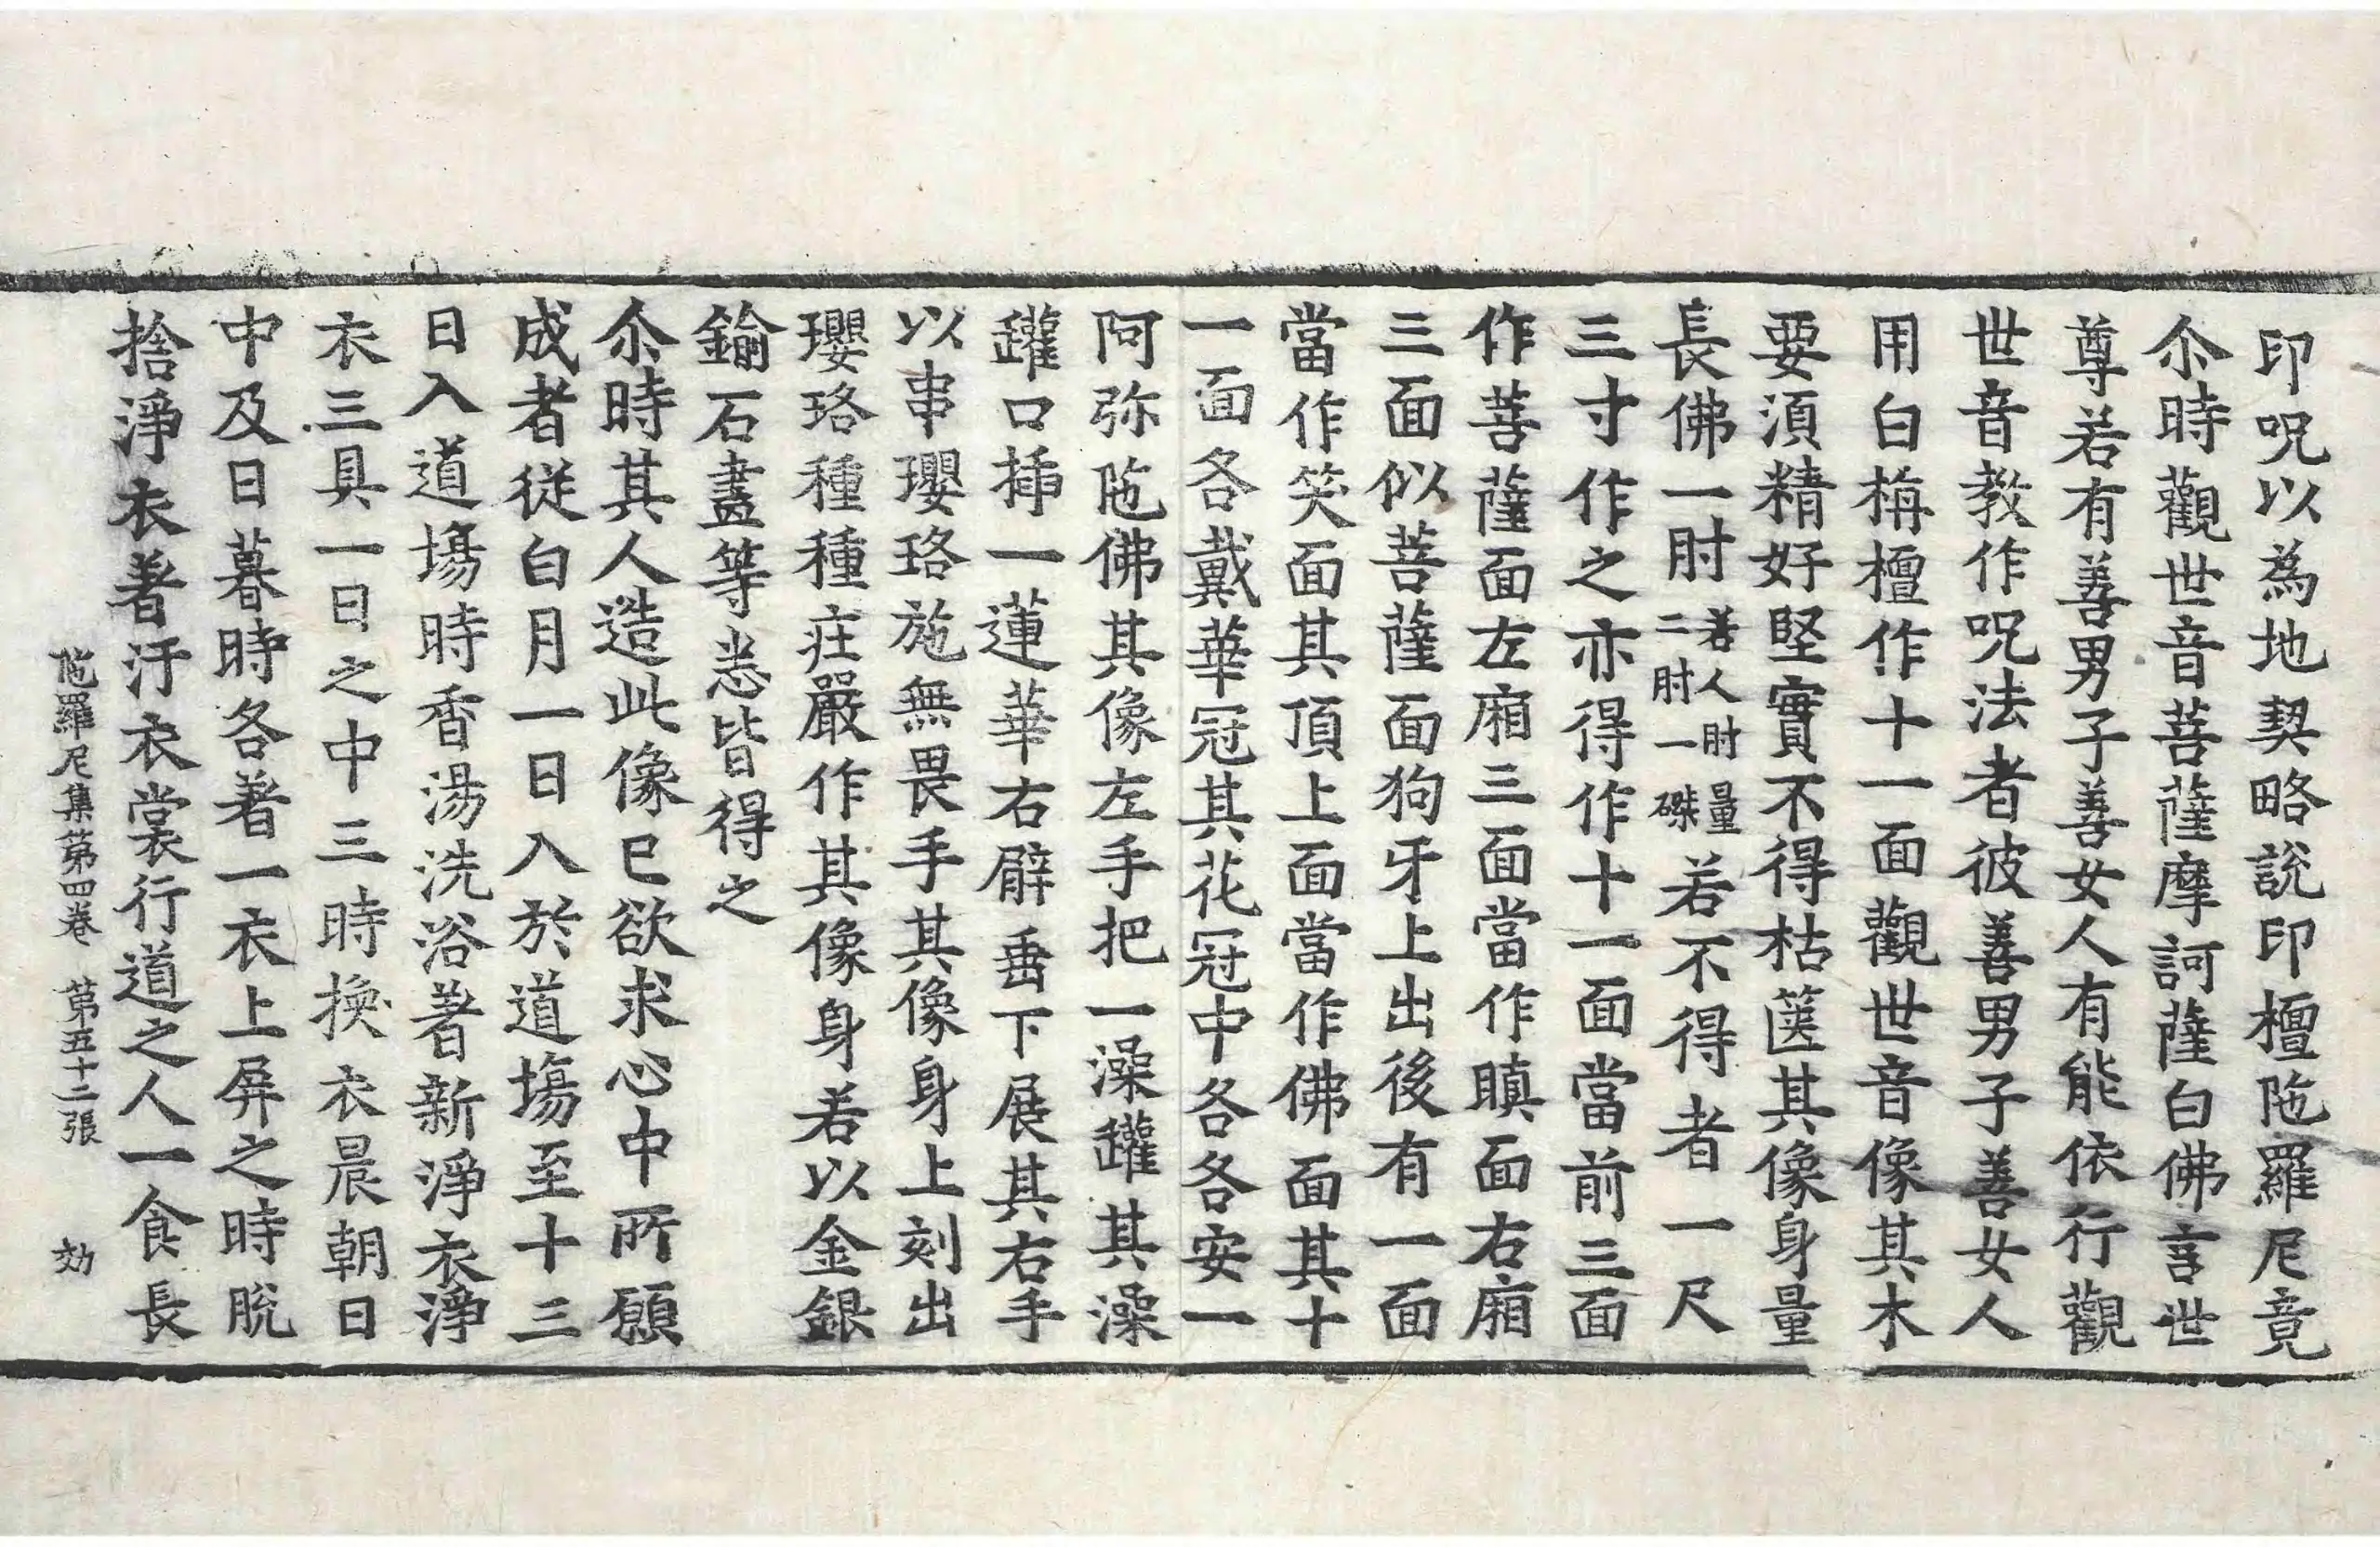 印呪以為地契略說印檀陁羅尼竟
尒時觀世音菩薩摩訶薩白佛言世
尊若有善男子善女人有能依行觀
世音教作呪法者彼善男子善女人
用白栴檀作十一面觀世音像其木
要須精好堅實不得枯篋其像身量
長佛一肘若人肘量二肘一磔若不得者一尺
三寸作之亦得作十一面當前三面
作菩薩面左廂三面當作瞋面右廂
三面似菩薩面狗牙上出後有一面
當作笑面其頂上面當作佛面其十
一面各戴華冠其花冠中各各安一
阿弥陁佛其像左手把一澡罐其澡
罐口揷一蓮華右臂垂下展其右手
以串瓔珞施無畏手其像身上刻出
瓔珞種種莊嚴作其像身若以金銀
鍮石盡等悉皆得之
尒時其人造此像已欲求心中所願
成者從白月一日入於道場至十三
日入道場時香湯洗浴著新淨衣淨
衣三具一日之中三時換衣晨朝日
中及日暮時各著一衣上屏之時脫
捨淨衣著汙衣裳行道之人一食長
陁羅尼集第四卷 第五十二張 効